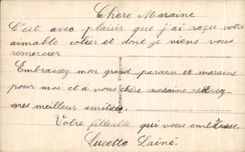 Chère Maraine
C'est avec plaisir que j'ai reçu votre
aimable colier et dont je viens vous
remercier
Embrassez mon grand parain et maraine
pour moi et a vous chère maraine recevez
mes meilleur amitiés.
Votre filleulle qui vous embrasse
Lucette Lainé